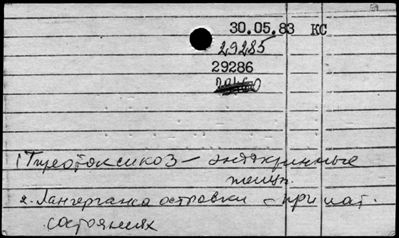 30.05.83 КС
29285
29286
1 Тиреотоксикоз – эндокринные
железы
2. Лангерганса островки – при пат.
состояниях